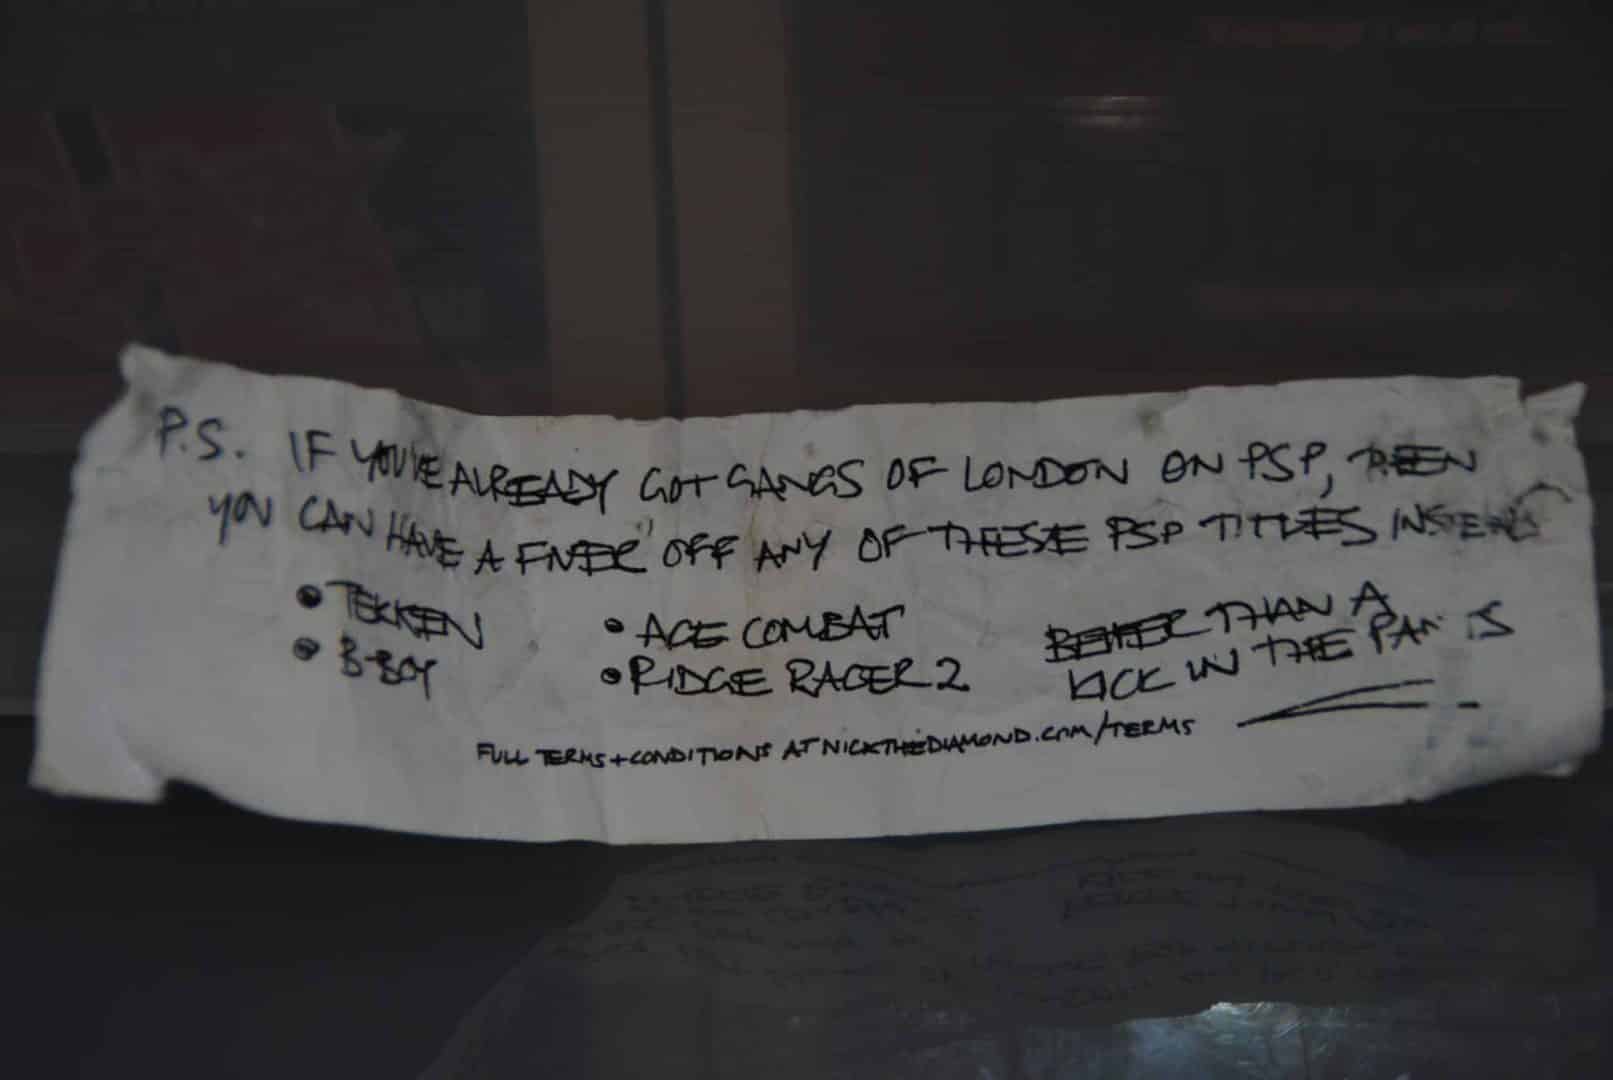 P.S. IF YOU'VE ALREADY GOT GANGS OF LONDON ON PSP, THEN
YOU CAN HAVE A FIVER OFF ANY OF THESE PSP TITLES INSTEAD
• TEKKEN
• B-BOY
• ACE COMBAT
• RIDGE RACER 2
BETTER THAN A
KICK IN THE PANTS
FULL TERMS + CONDITIONS AT NICKTHEDIAMOND.COM/TERMS